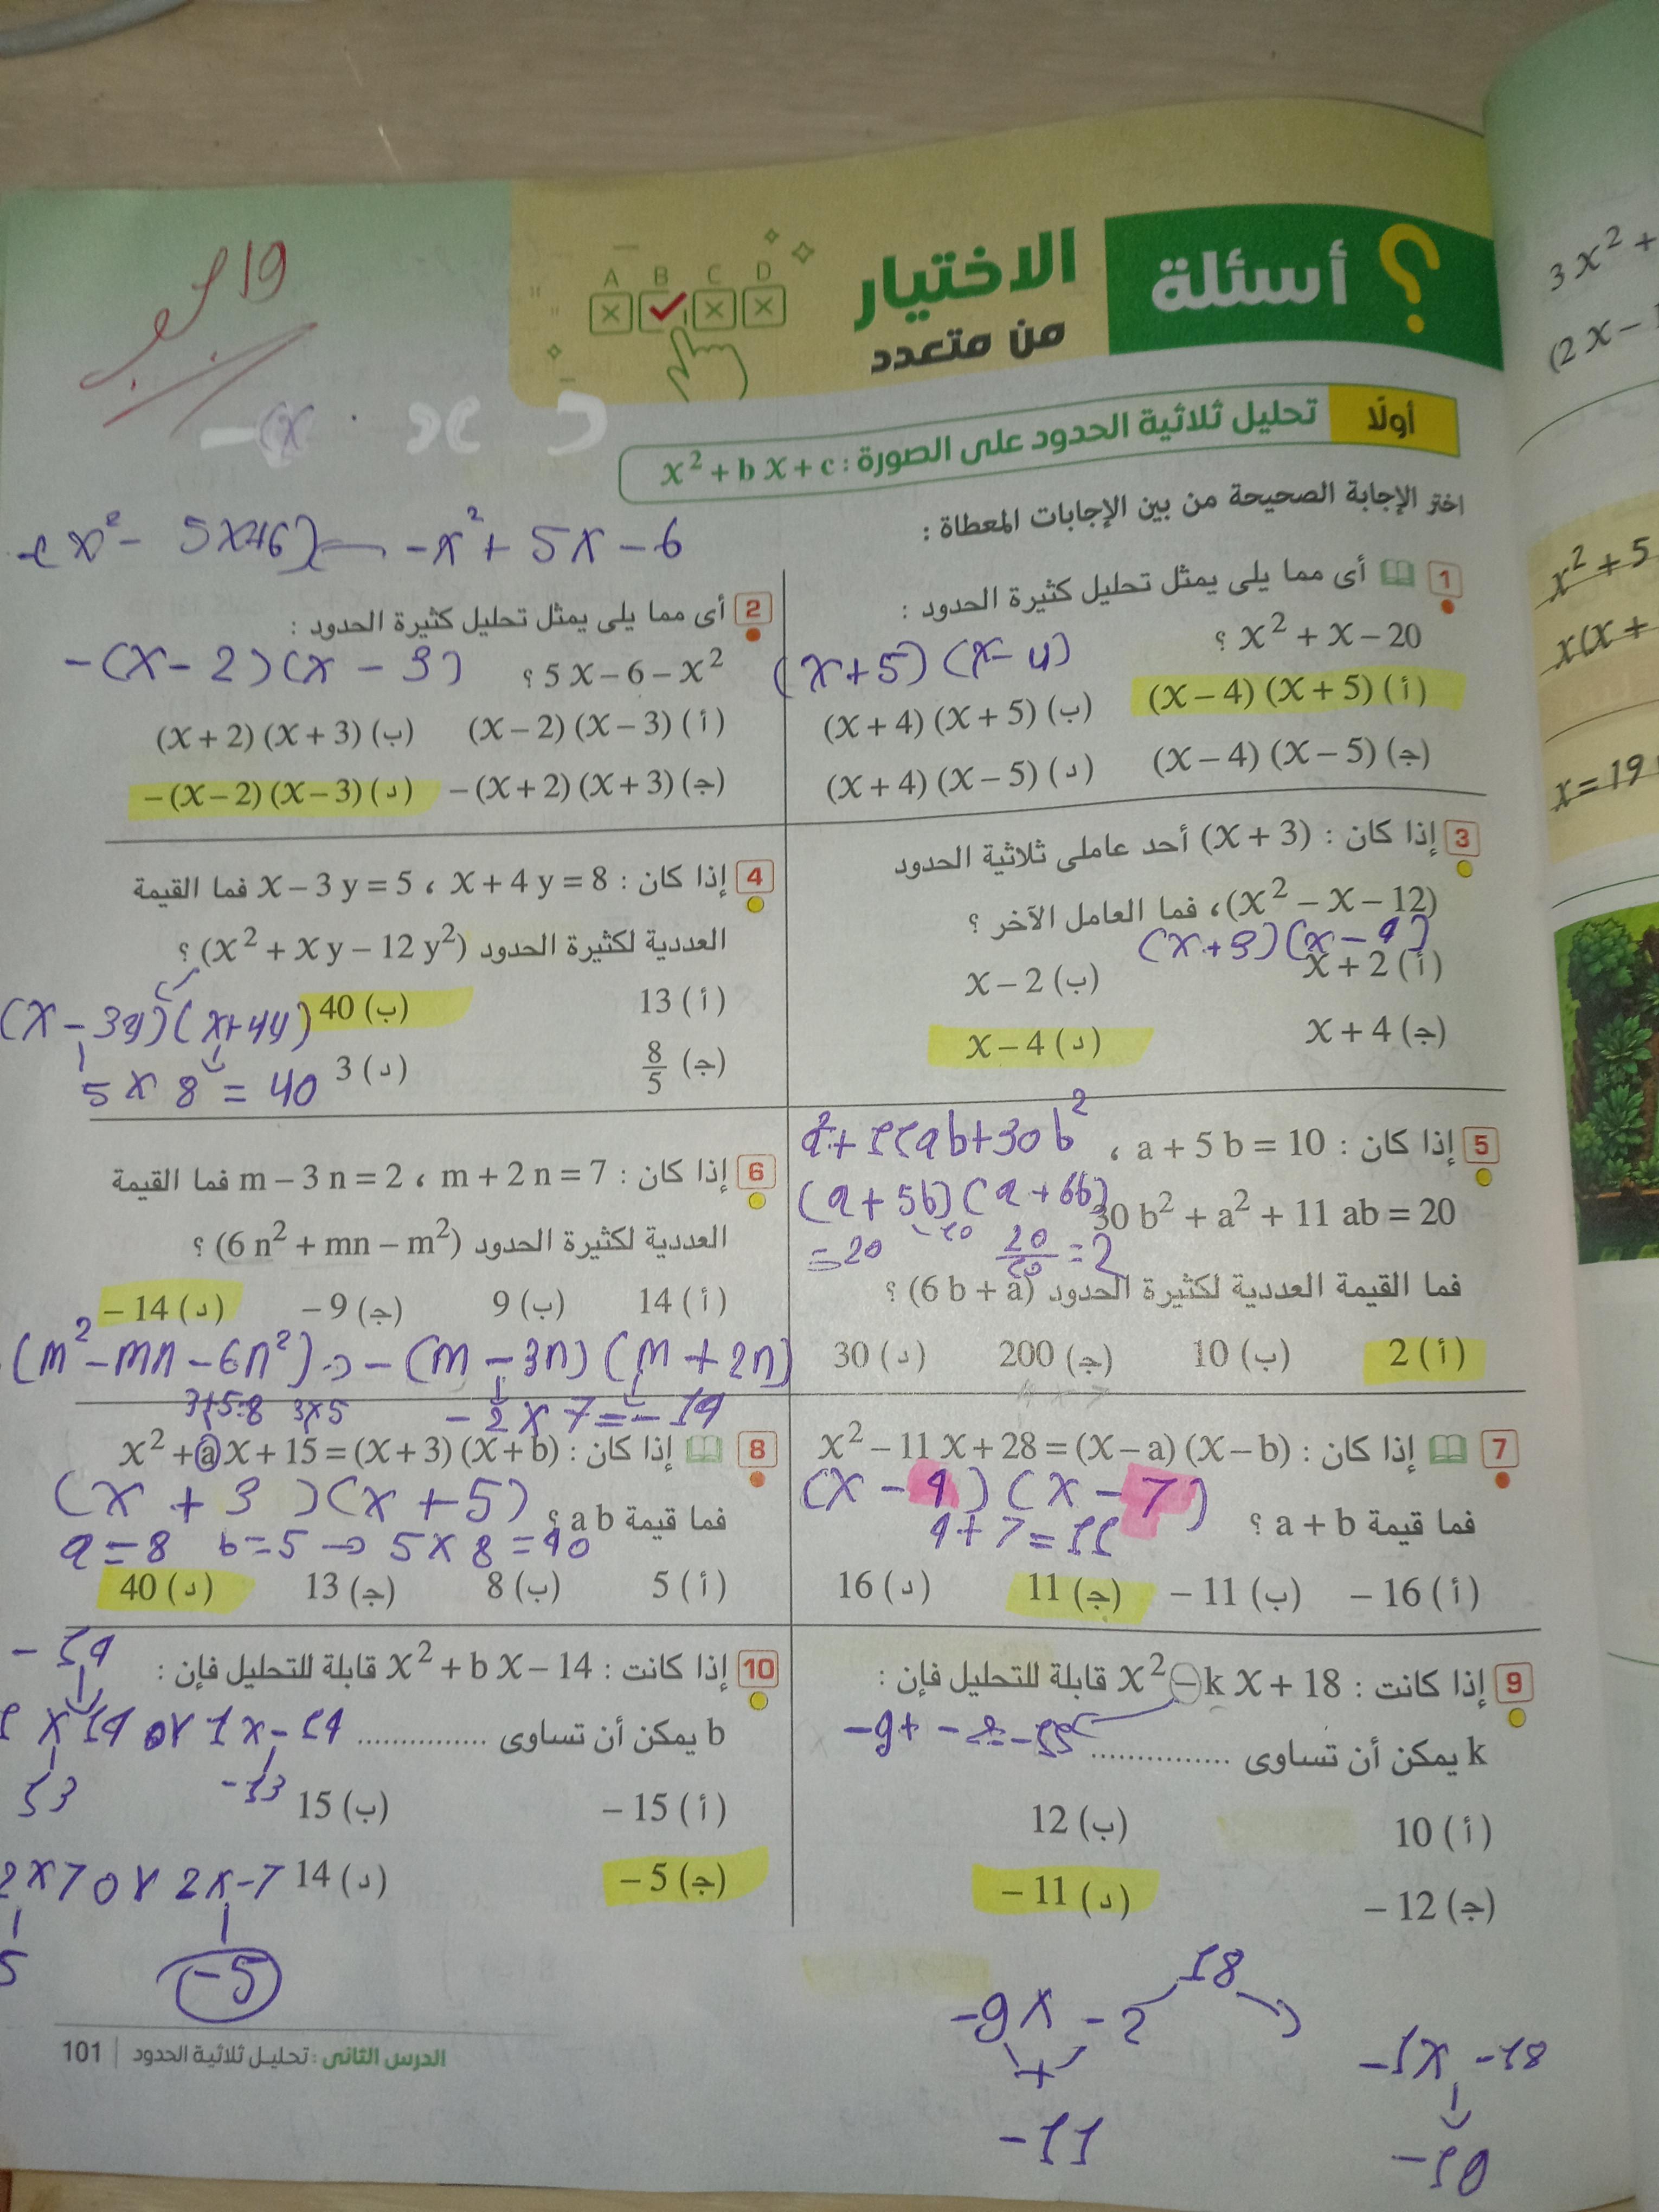 أسئلة الاختيار من متعدد
A B C D
19
أولًا تحليل ثلاثية الحدود على الصورة : x² + b x + c
اختر الإجابة الصحيحة من بين الإجابات المعطاة :
-(x² - 5x+6) -x² + 5x - 6
1 أى مما يلى يمثل تحليل كثيرة الحدود :
x² + x – 20 ؟
(x+5) (x-4)
(أ) (x – 4) (x + 5)
(ب) (x + 4) (x + 5)
(جـ) (x – 4) (x – 5)
(د) (x + 4) (x – 5)
2 أى مما يلى يمثل تحليل كثيرة الحدود :
5 x – 6 – x² ؟
-(x-2)(x-3)
(أ) (x – 2) (x – 3)
(ب) (x + 2) (x + 3)
(جـ) – (x + 2) (x + 3)
(د) – (x – 2) (x – 3)
3 إذا كان : (x + 3) أحد عاملى ثلاثية الحدود
(x² – x – 12)، فما العامل الآخر ؟
(x+3)(x-4)
(أ) x + 2
(ب) x – 2
(جـ) x + 4
(د) x – 4
4 إذا كان : x + 4 y = 8 ، x – 3 y = 5 فما القيمة
العددية لكثيرة الحدود (x² + x y – 12 y²) ؟
(أ) 13
(ب) 40
(جـ) 8/5
(د) 3
(x-3y)(x+4y)
5 x 8 = 40
5 إذا كان : a + 5 b = 10 ،
a²+11ab+30b²
30 b² + a² + 11 ab = 20
(a+5b)(a+6b)
=20 10 20/10 =2
فما القيمة العددية لكثيرة الحدود (6 b + a) ؟
(أ) 2
(ب) 10
(جـ) 200
(د) 30
6 إذا كان : m + 2 n = 7 ، m – 3 n = 2 فما القيمة
العددية لكثيرة الحدود (6 n² + mn – m²) ؟
(أ) 14
(ب) 9
(جـ) – 9
(د) – 14
-(m²-mn-6n²) → -(m-3n)(m+2n)
-2x7=-14
7 إذا كان : x² – 11 x + 28 = (x – a) (x – b)
(x-4)(x-7)
فما قيمة a + b ؟
4+7=11
(أ) – 16
(ب) – 11
(جـ) 11
(د) 16
3+5=8 3x5
8 إذا كان : x² + a x + 15 = (x + 3) (x + b)
(x+3)(x+5)
فما قيمة a b ؟
a=8 b=5 → 5x8=40
(أ) 5
(ب) 8
(جـ) 13
(د) 40
9 إذا كانت : x² – k x + 18 قابلة للتحليل فإن :
k يمكن أن تساوى ...............
-9+-2=-11
(أ) 10
(ب) 12
(جـ) – 12
(د) – 11
18
-9x-2
+
-11
-1x-18
10 إذا كانت : x² + b x – 14 قابلة للتحليل فإن :
b يمكن أن تساوى ...............
-14
x14 or 1x-14
13 -13
(أ) – 15
(ب) 15
(جـ) – 5
(د) 14
2x7 or 2x-7
5 -5
الدرس الثانى : تحليل ثلاثية الحدود | 101
3 x² +
(2 x –
x² + 5
x(x +
x = 19